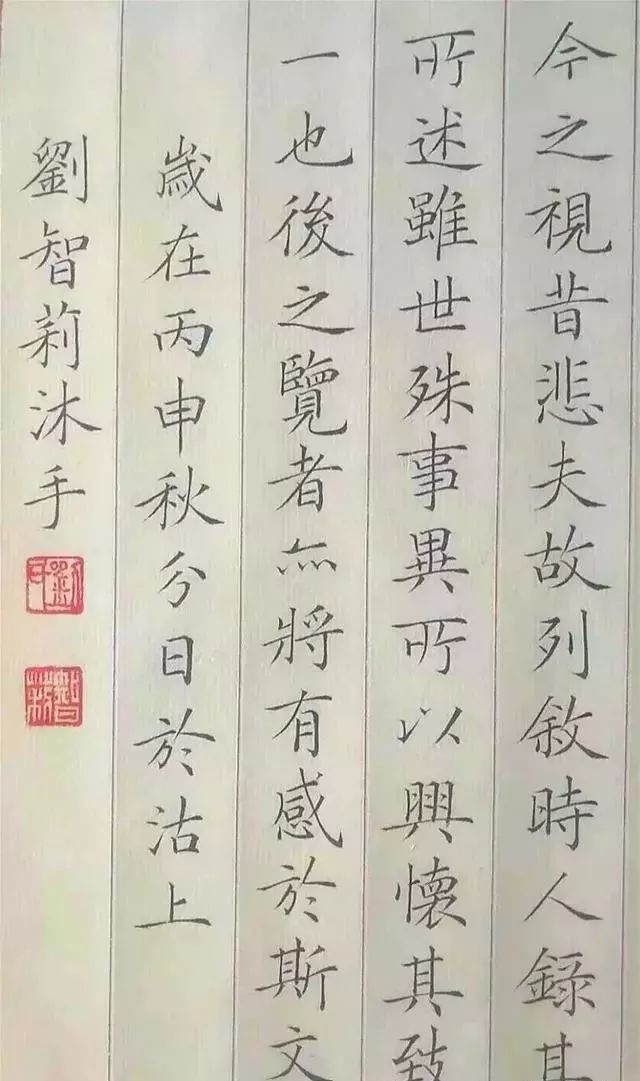 今之視昔悲夫故列敘時人錄其
所述雖世殊事異所以興懷其致
一也後之覽者亦將有感於斯文
歲在丙申秋分日於沽上
劉智莉沐手